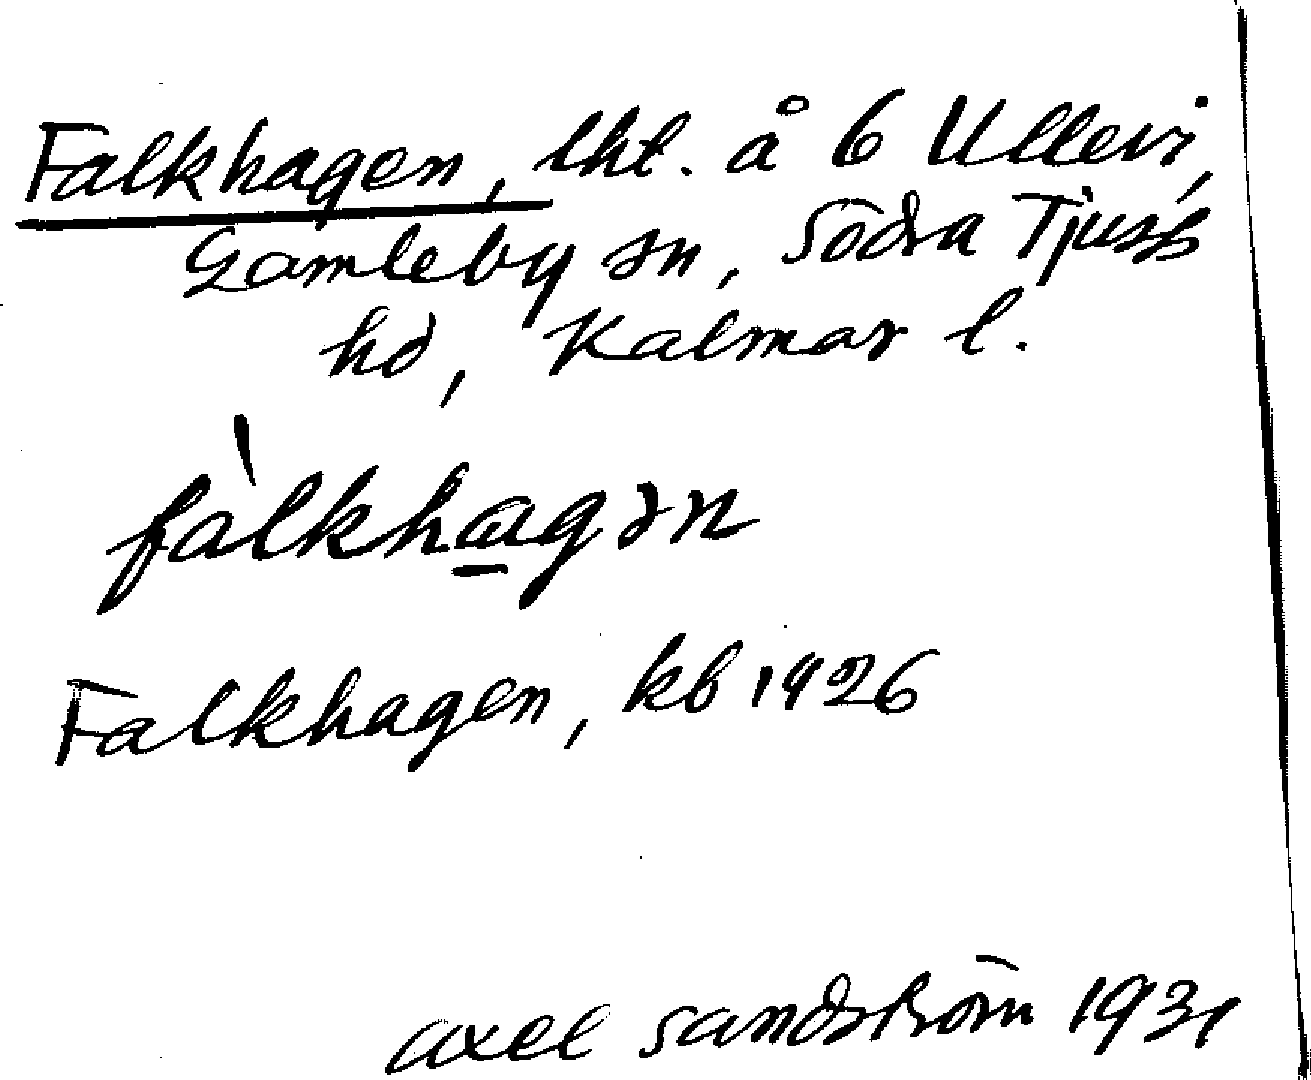 Falkhagen, lht. å 6 Ullevi,
Gamleby sn, Södra Tjusts
hd, Kalmar l.
fàlkhagən
Falkhagen, kb 1926
Axel Sandström 1931